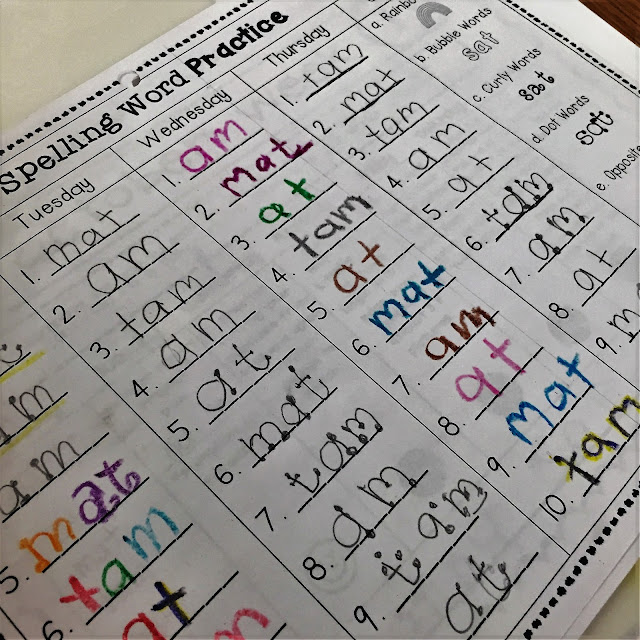 Spelling Word Practice
am
5. mat
6. tam
at
Tuesday
1. mat
2. am
3. tam
4. am
5. at
6. mat
7. tam
8. am
9. tam
at
Wednesday
1. am
2. mat
3. at
4. tam
5. at
6. mat
7. am
8. at
9. mat
10. tam
Thursday
1. tam
2. mat
3. tam
4. am
5. at
6. tam
7. am
8. at
9.
a.
b. Bubble Words
sat
c. Curly Words
sat
d. Dot Words
sat
e. Opposite